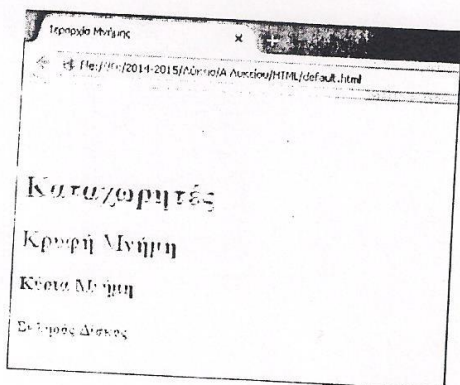 Ιεραρχία Μνήμης ×
file:///F:/2014-2015/Λύκειο/Α Λυκείου/HTML/default.html
Καταχωρητές
Κρυφή Μνήμη
Κύρια Μνήμη
Σκληρός Δίσκος